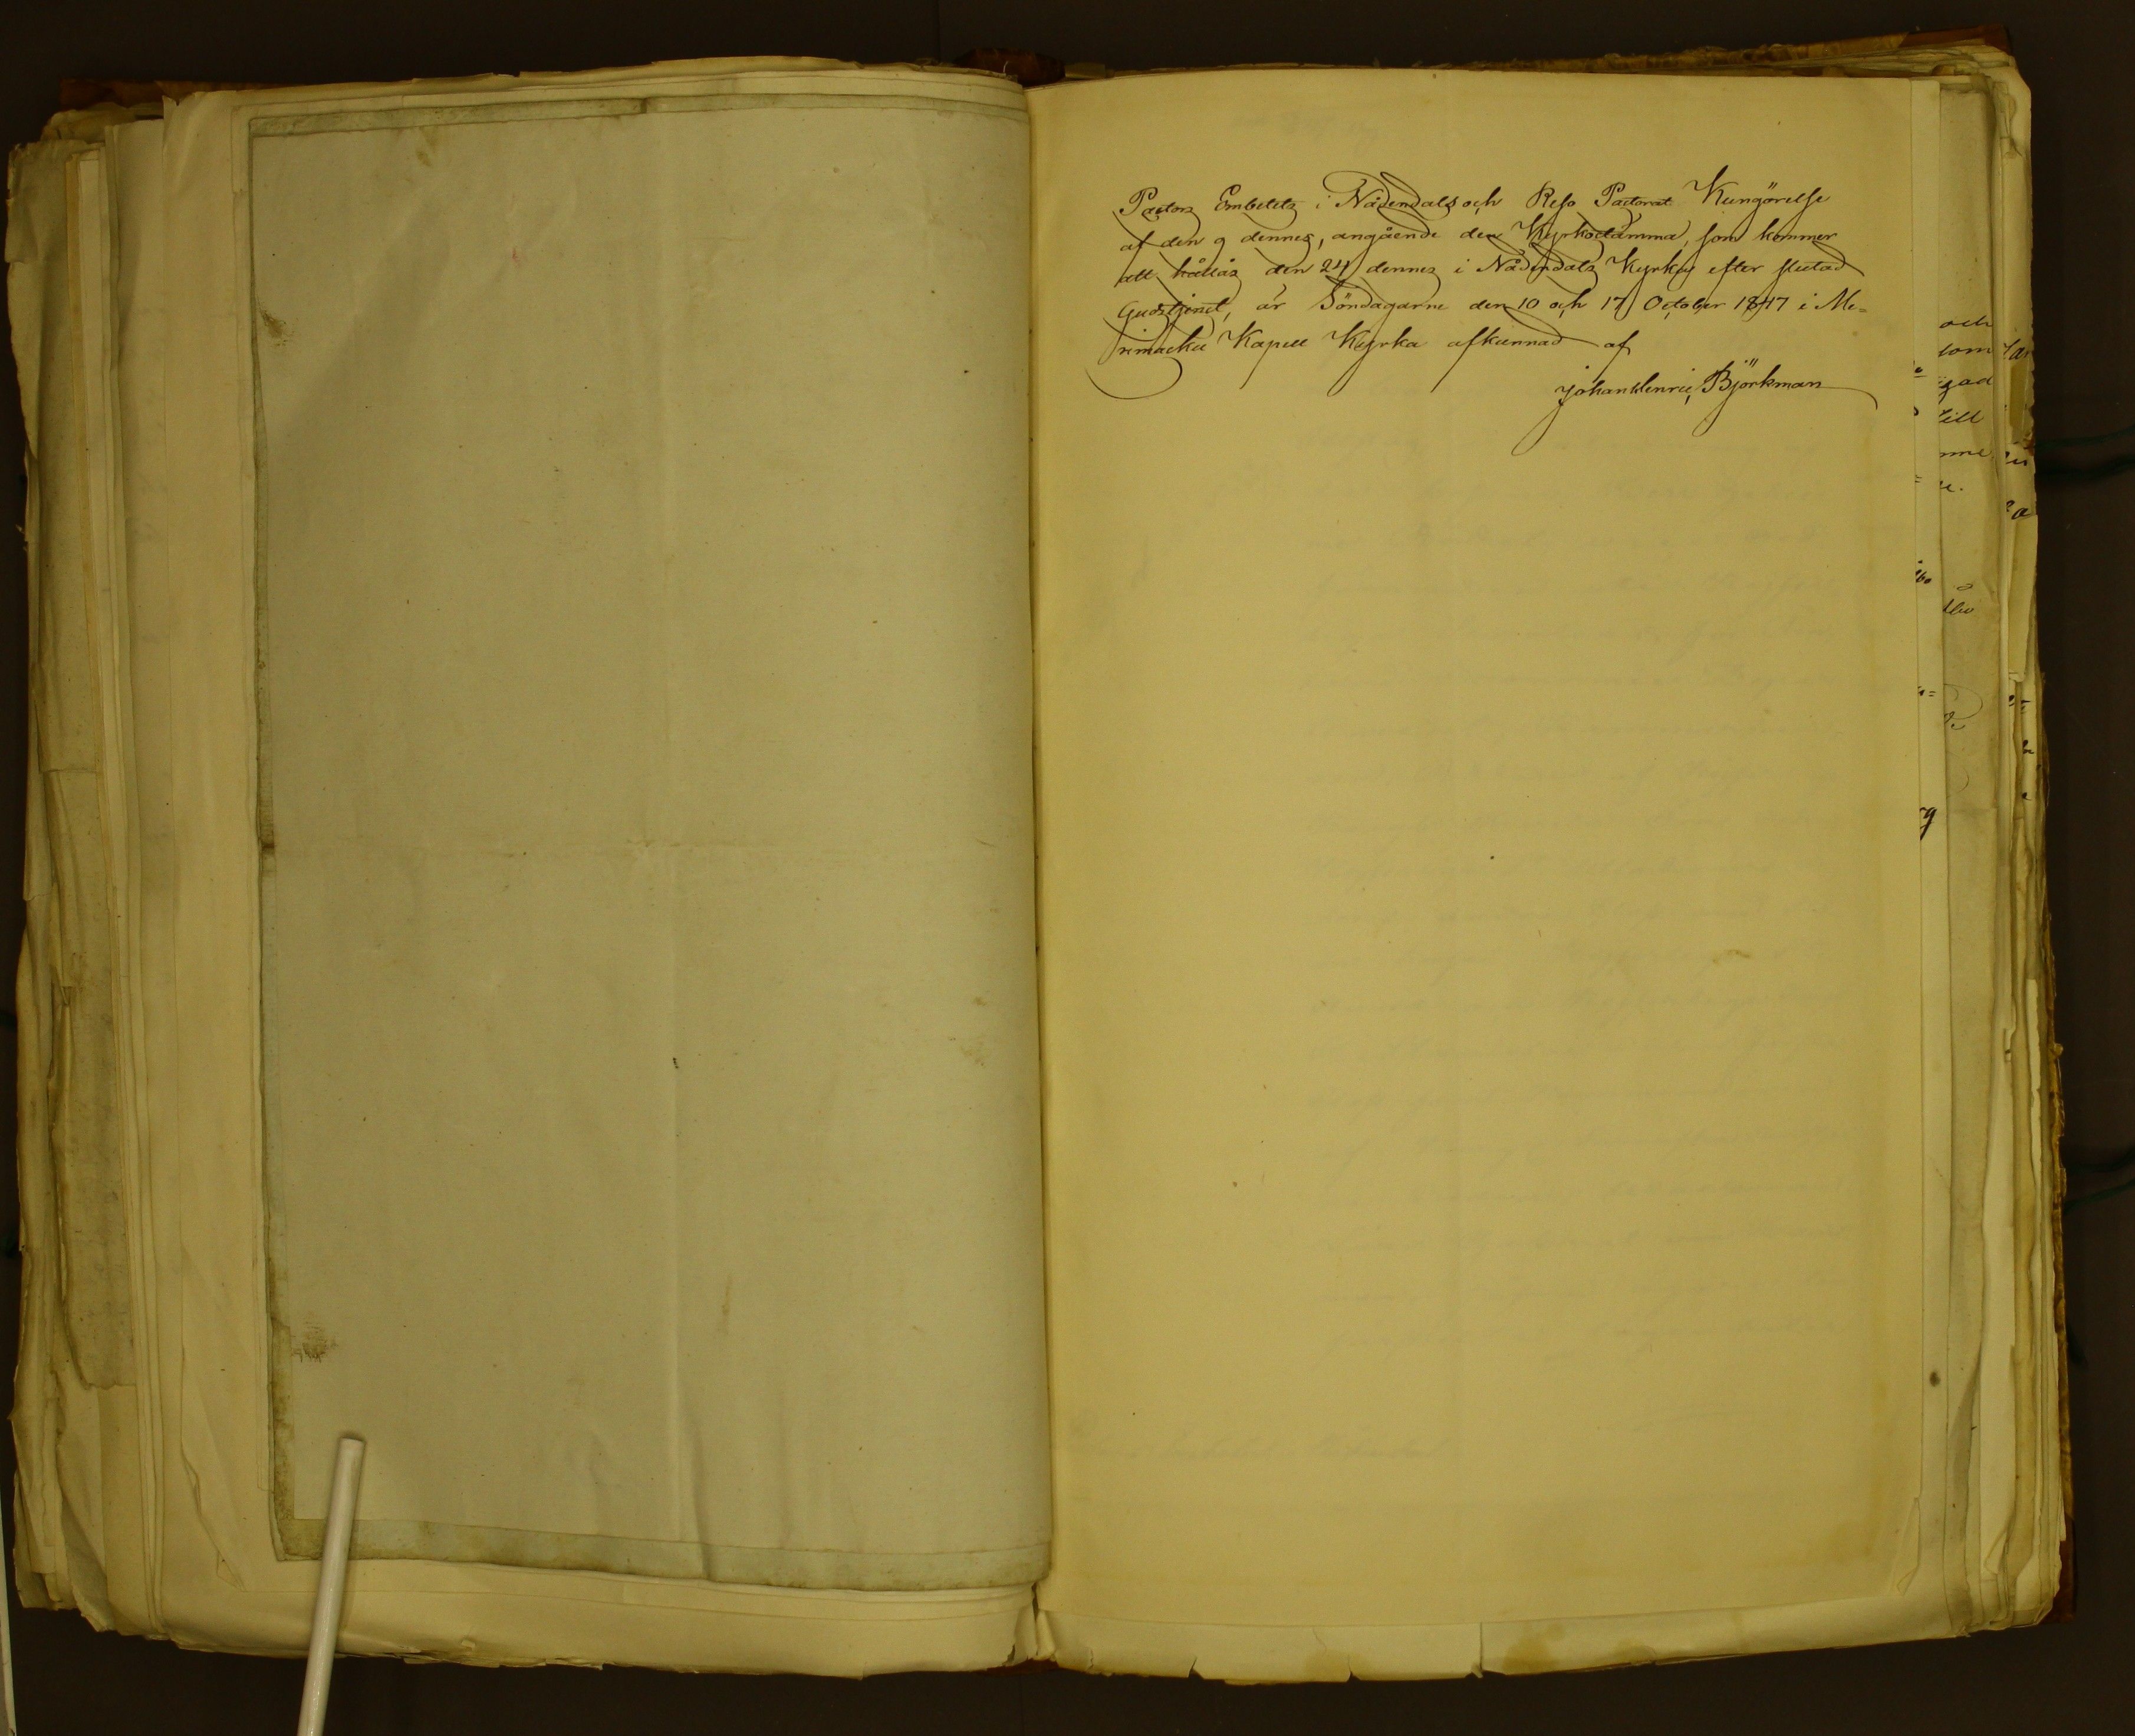 Pastors Embetets i Nådendals och Reso Pastorat Kungörelse
af den 9 dennes, angående den Kyrkostämma, som kommer
att hållas den 24 dennes i Nådendals Kyrka efter slutad
Gudstjenst, är Söndagarne den 10 och 17 October 1847 i Me=
rimasku Kapell Kyrka afkunnad af
Johan Henric Björkman
och
som
gad
till